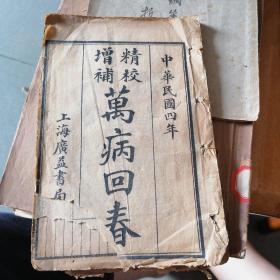 中華民國四年
精校
增補
萬病回春
上海廣益書局